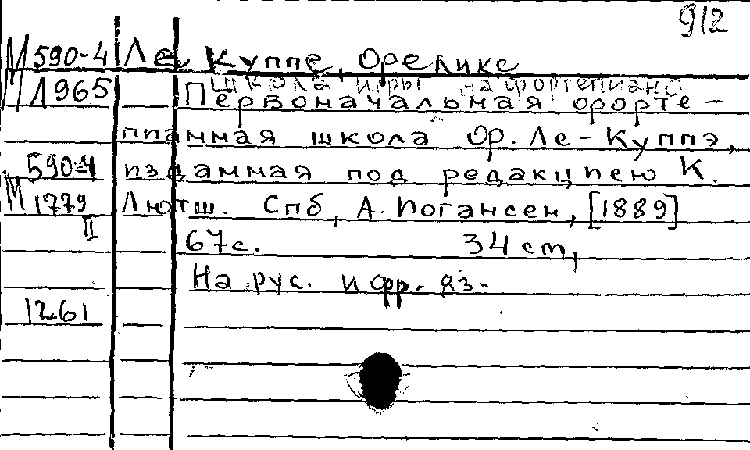 912
М 590-4 Ле Куппе, Орелике
1965 Школа игры на фортепиано
Первоначальная форте-
пианная школа Ор. Ле-Куппэ,
590-4 изданная под редакциею К.
М 1779 II Лютш. Спб, А. Иогансен, [1889]
67с. 34 cm,
На рус. и фр. яз.
1261